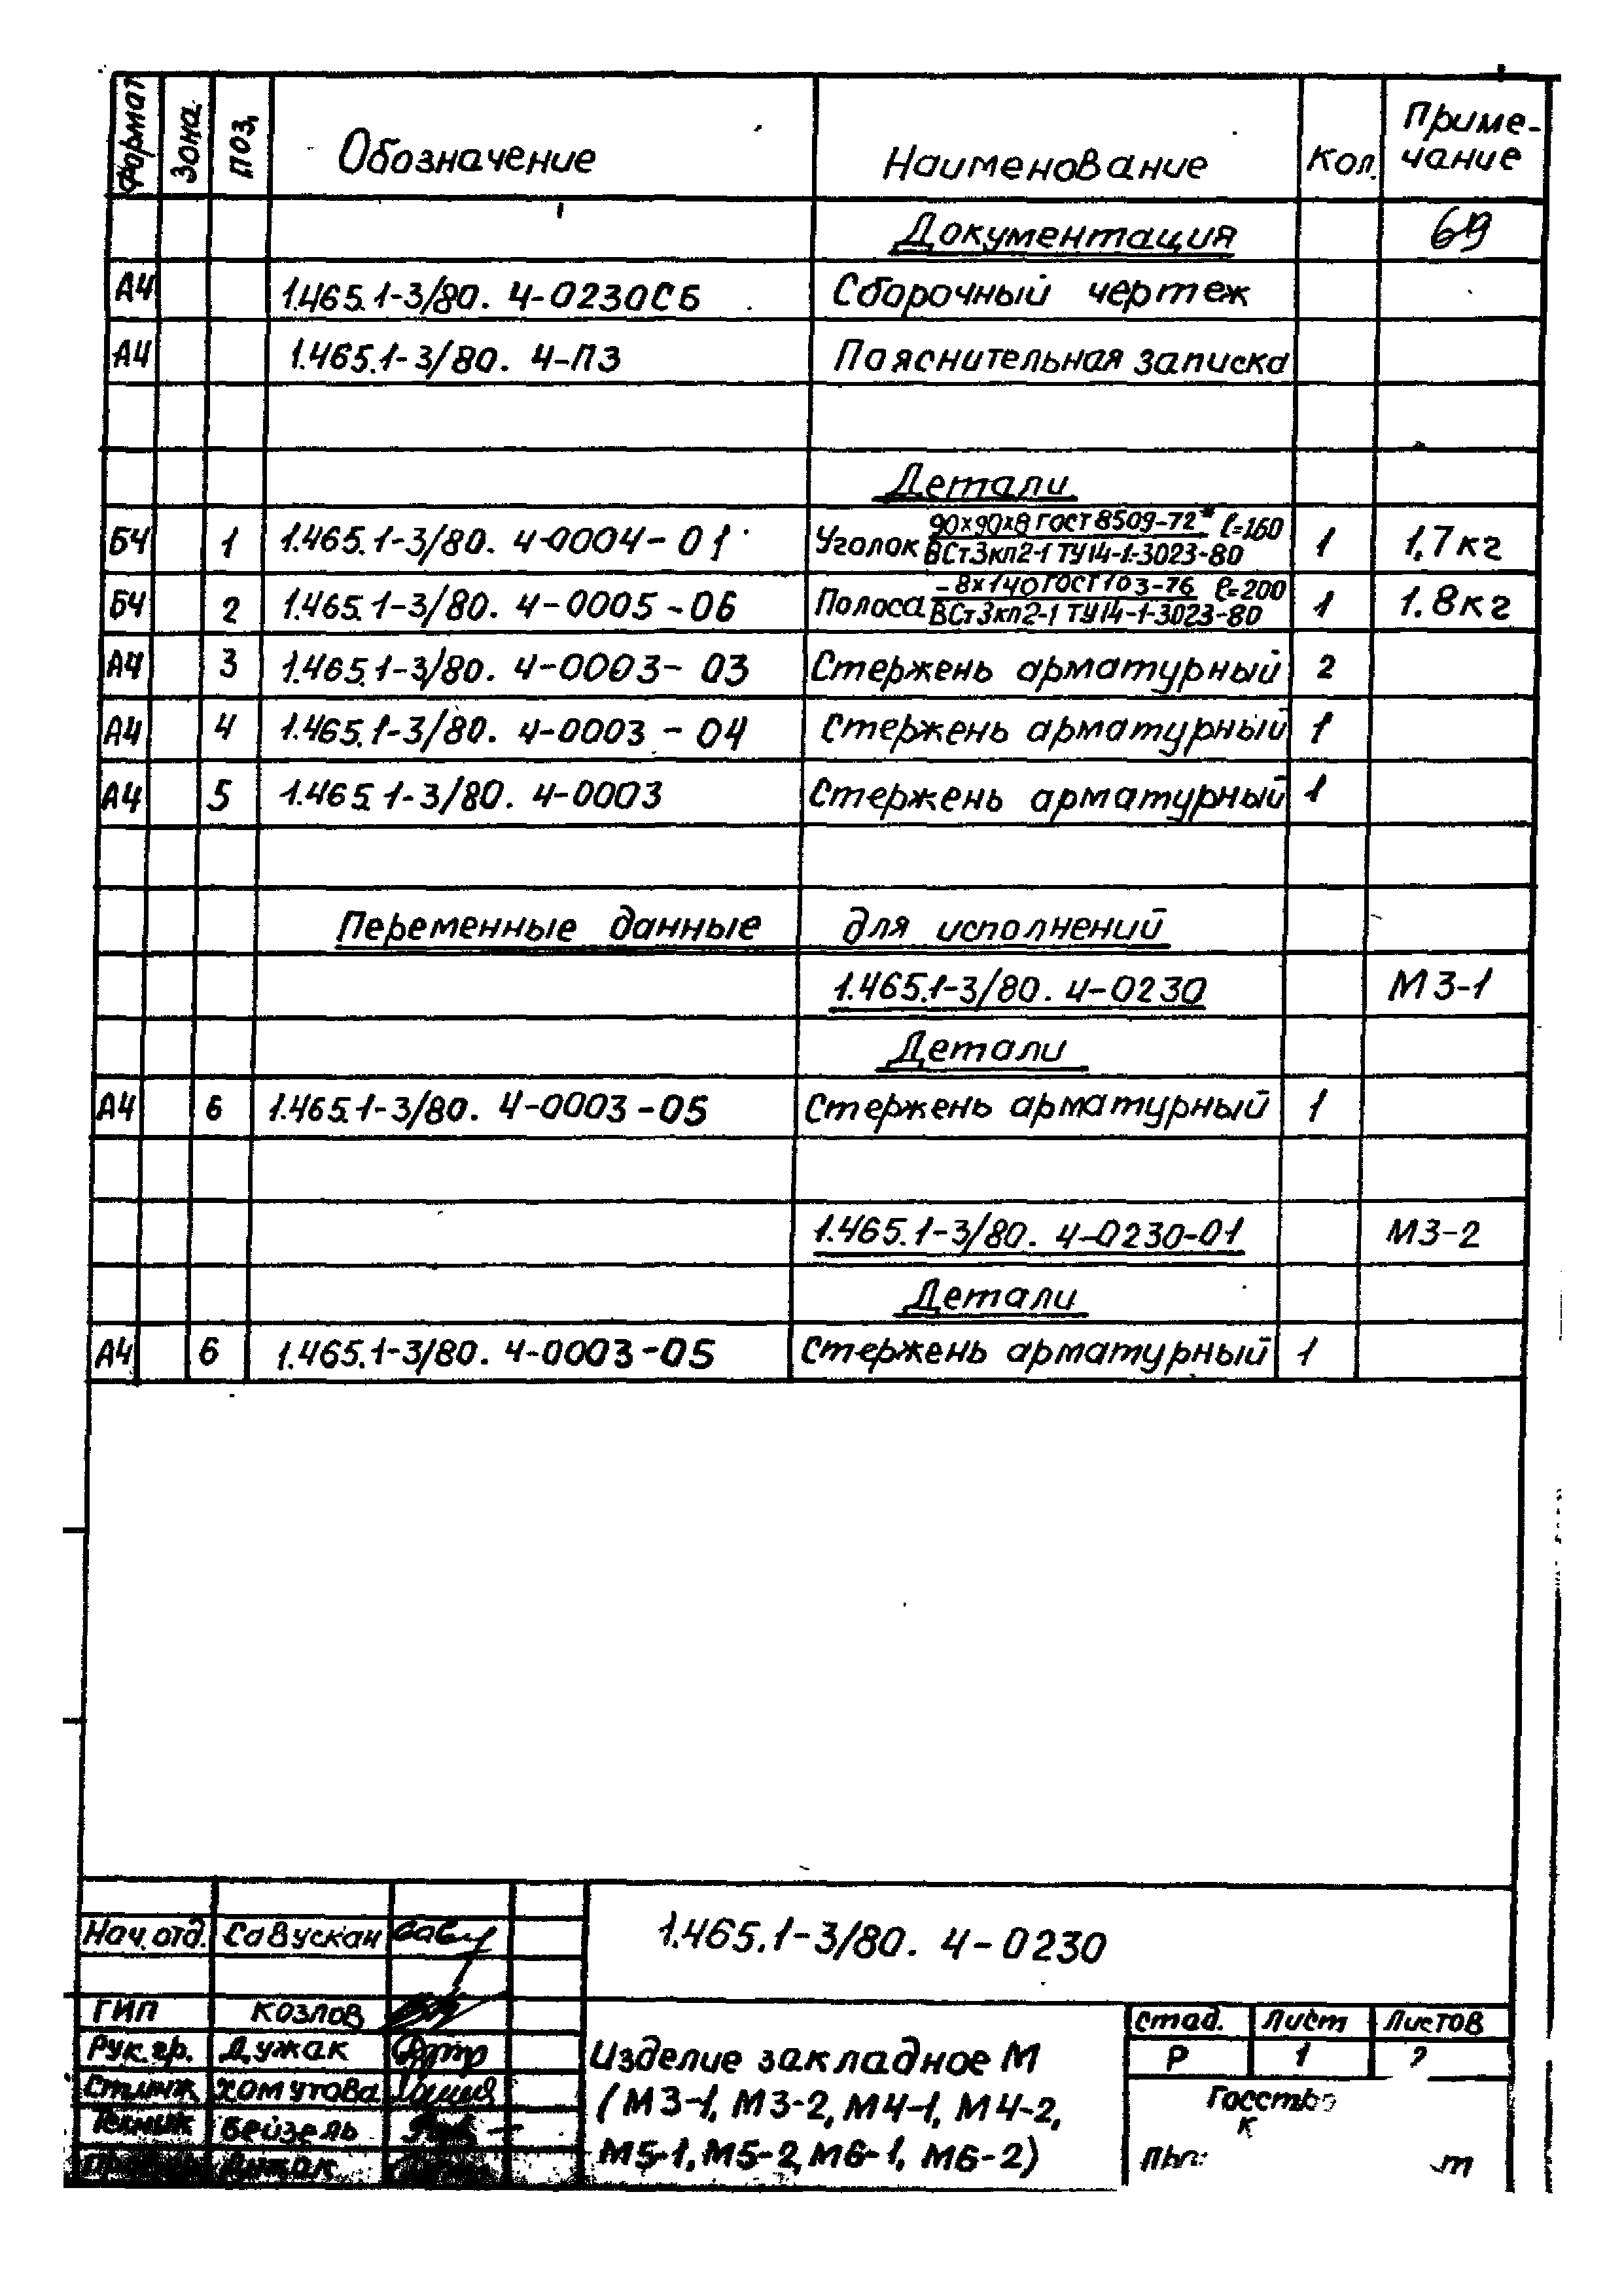 Формат Зона Поз. Обозначение Наименование Кол. Приме-
чание
Документация 69
А4 1.465.1-3/80. 4-0230СБ Сборочный чертеж
А4 1.465.1-3/80. 4-ПЗ Пояснительная записка
Детали
Б4 1 1.465.1-3/80. 4-0004-01 Уголок 90х90х8 ГОСТ 8509-72* ℓ=160 1 1,7кг
ВСт3кп2-1 ТУ14-1-3023-80
Б4 2 1.465.1-3/80. 4-0005-06 Полоса -8х140 ГОСТ 103-76 ℓ=200 1 1.8кг
ВСт3кп2-1 ТУ14-1-3023-80
А4 3 1.465.1-3/80. 4-0003-03 Стержень арматурный 2
А4 4 1.465.1-3/80. 4-0003-04 Стержень арматурный 1
А4 5 1.465.1-3/80. 4-0003 Стержень арматурный 1
Переменные данные для исполнений
1.465.1-3/80. 4-0230 М3-1
Детали
А4 6 1.465.1-3/80. 4-0003-05 Стержень арматурный 1
1.465.1-3/80. 4-0230-01 М3-2
Детали
А4 6 1.465.1-3/80. 4-0003-05 Стержень арматурный 1
Нач. отд. Савускан
1.465.1-3/80. 4-0230
ГИП Козлов
Рук. гр. Дужак
Ст.инж Хомутова
Бейзель
Дужак
Изделие закладное М
(М3-1, М3-2, М4-1, М4-2,
М5-1, М5-2, М6-1, М6-2)
Стад. Лист Листов
Р 1